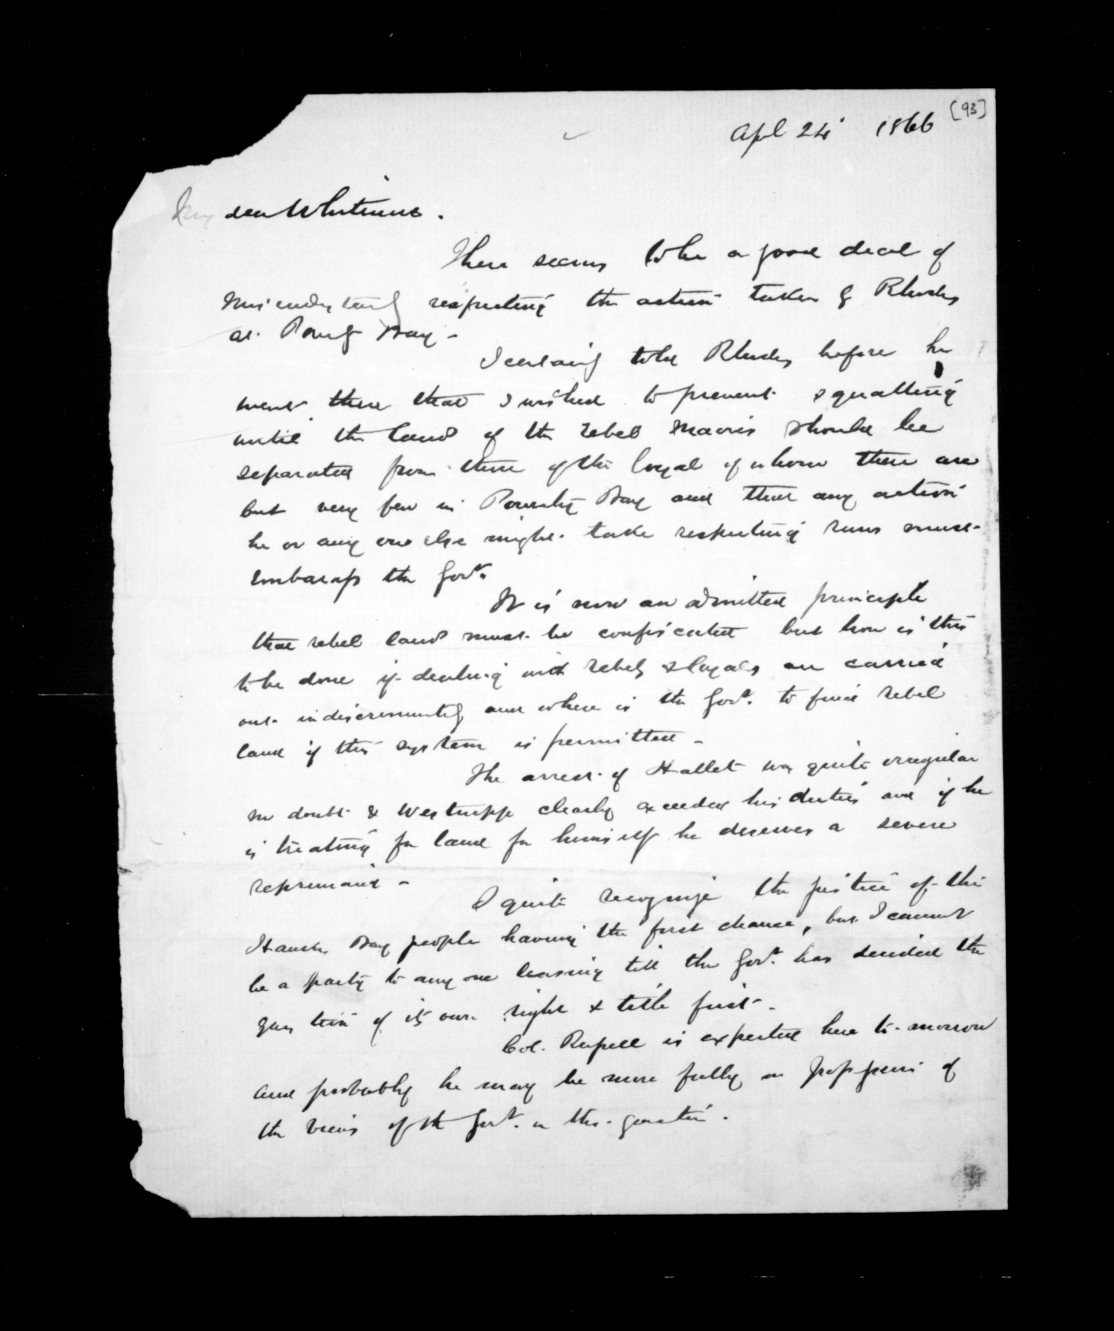 [93]
Apl 24 1866
My dear Whitmore.
There seems to be a good deal of
misunderstandg respecting the action taken by Rhodes
at Povety Bay -
I certainly told Rhodes before he
went there that I wished to prevent squatting
until the land of the rebel Maoris should be
separated from those of the loyal of whom there are
but very few in Poverty Bay and that any action
he or any one else might take respecting runs must
embarass the Govt.
It is now an admitted principle
that rebel land must be confiscated but how is this
to be done if dealing with rebels & loyals are carried
out indiscriminately and where is the Govt. to find rebel
land if this system is permitted -
The arrest of Hallet was quite irregular
no doubt & Westrupp clearly exceeded his duties and if he
is treating for land for himself he deserves a severe
reprimand -
I quite recognize the justice of the
Hawkes Bay people having the first chance, but I cannot
be a party to any one leasing till the Govt. has decided the
question of its own right & title first -
Col. Russell is expected here to-morrow
and probably he may be more fully in possession of
the views of the Govt. on this question.